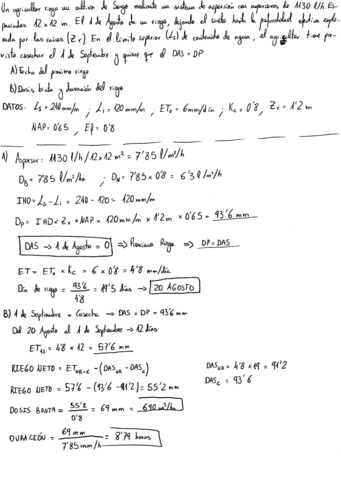 Un agricultor riega un cultivo de Sorgo mediante un sistema de aspersión con aspersores de 1130 l/h Es-
paciados 12x12 m. El 1 de Agosto da un riego, dejando el suelo hasta la profundidad efectiva explo-
rada por las raices (Zr) En el límite superior (Ls) de contenido de agua, el agricultor tiene pre-
visto cosechar el 1 de Septiembre y quiere que el DAS = DP
A) Fecha del proximo riego
B) Dosis bruta y duración del riego
DATOS: Ls = 240 mm/m ; Li = 120 mm/m , ETo = 6 mm/día ; Kc = 0'8 , Zr = 1'2 m
NAP = 0'65 , Ef = 0'8
A) Aspersor: 1130 l/h / 12x12 m² = 7'85 l/m²/h
DB = 7'85 l/m²/h ; DN = 7'85 x 0'8 = 6'3 l/m²/h
IHD = Ls - Li = 240 - 120 = 120 mm/m
DP = IHD x Zr x NAP = 120 mm/m x 1'2 m x 0'65 = 93'6 mm
DAS → 1 de Agosto = 0 ⇒ Proximo Riego ⇒ DP = DAS
ET = ETo x Kc = 6 x 0'8 = 4'8 mm/día
Día de riego = 93'6 / 4'8 = 19'5 días → 20 AGOSTO
B) 1 de Septiembre = Cosecha → DAS = DP = 93'6 mm
Del 20 Agosto al 1 de Septiembre → 12 días
ET12 = 4'8 x 12 = 57'6 mm
RIEGO NETO = ET - (DAS - DASc)
DAS = 4'8 x 19 = 91'2
DASc = 93'6
RIEGO NETO = 57'6 - (93'6 - 91'2) = 55'2 mm
DOSIS BRUTA = 55'2 / 0'8 = 69 mm = 690 m³/ha
DURACIÓN = 69 mm / 7'85 mm/h = 8'79 horas